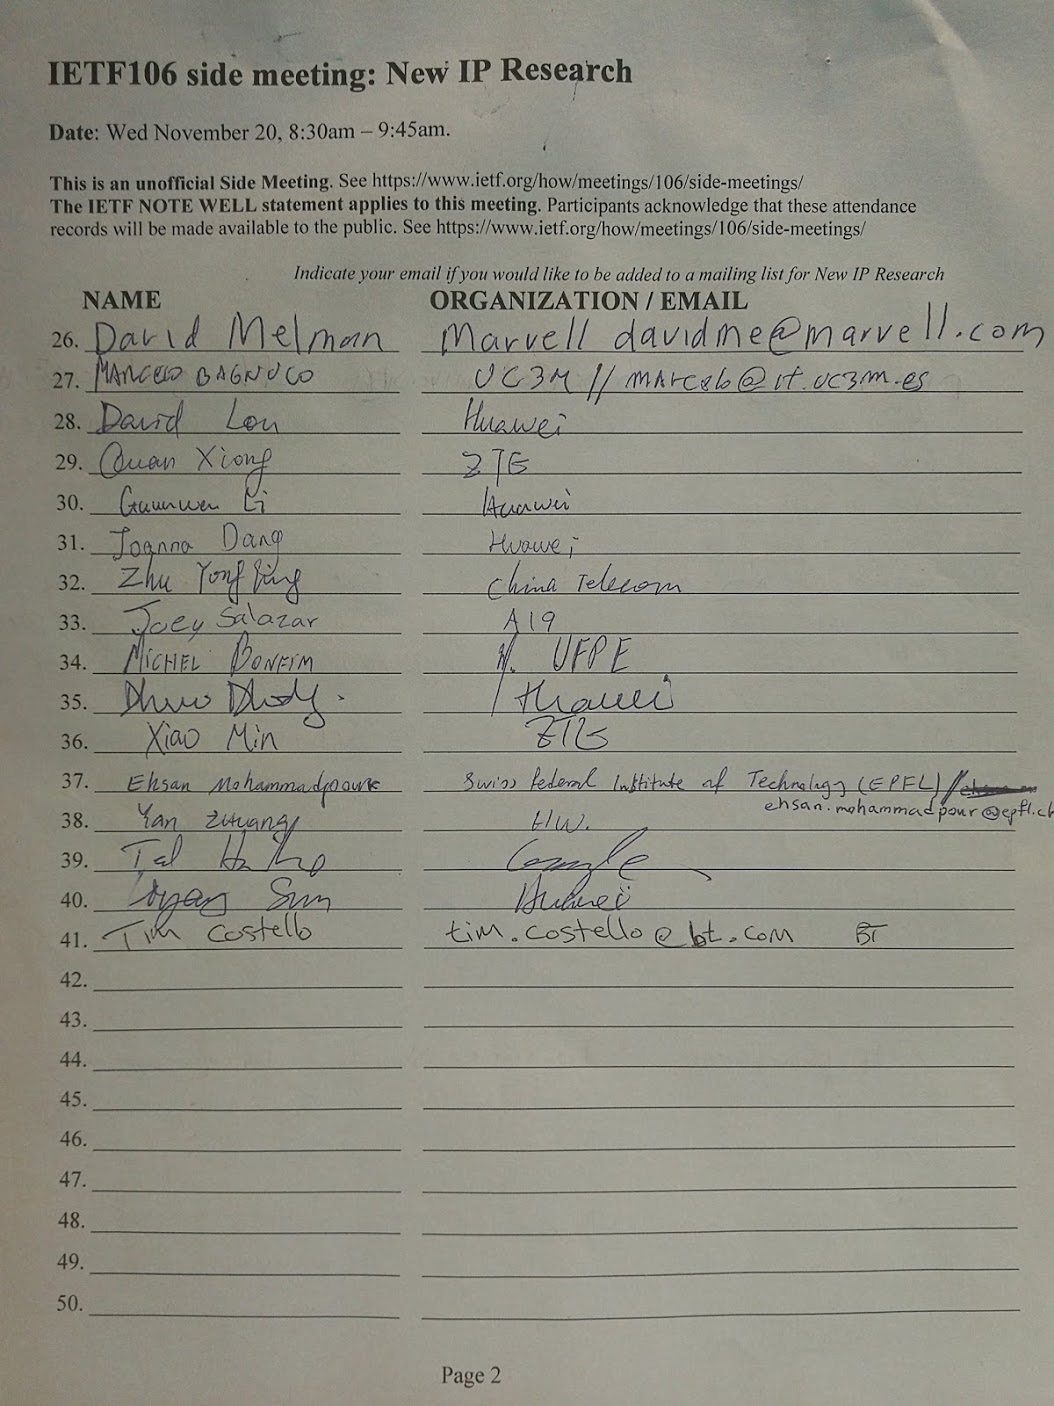 IETF106 side meeting: New IP Research
Date: Wed November 20, 8:30am – 9:45am.
This is an unofficial Side Meeting. See https://www.ietf.org/how/meetings/106/side-meetings/
The IETF NOTE WELL statement applies to this meeting. Participants acknowledge that these attendance
records will be made available to the public. See https://www.ietf.org/how/meetings/106/side-meetings/
Indicate your email if you would like to be added to a mailing list for New IP Research
NAME ORGANIZATION / EMAIL
26. David Melman Marvell davidme@marvell.com
27. MARCELO BAGNULO UC3M // marcelo@it.uc3m.es
28. David Lou Huawei
29. Quan Xiong ZTE
30. Li Huawei
31. Joanna Dang Huawei
32. Zhu China Telecom
33. Joey Salazar A19
34. MICHEL BONFIM UFPE
35. Dhruv Dhody Huawei
36. Xiao Min ZTE
37. Ehsan Mohammadpour Swiss Federal Institute of Technology (EPFL) //
ehsan.mohammadpour@epfl.ch
38. Yan HW.
39. Tal
40. Sun Huawei
41. Tim Costello tim.costello@bt.com BT
42.
43.
44.
45.
46.
47.
48.
49.
50.
Page 2